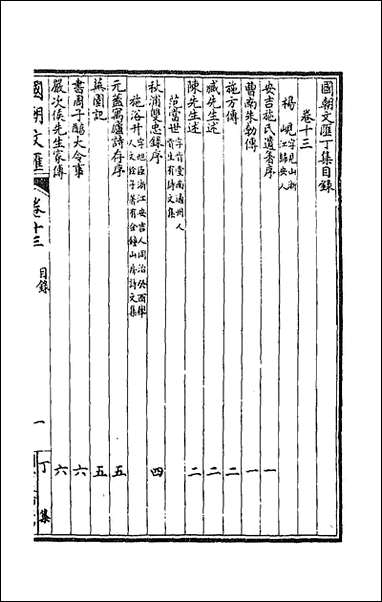 國朝文匯丁集目錄
卷十三
楊峴 字見山浙江歸安人
安吉施氏遺著序 一
曹南朱勒傳 一
施方傳 二
臧先生述 二
陳先生述 二
范當世 字肯堂南通州人貢生有詩文集
秋浦雙忠錄序 四
施浴升 字旭臣浙江安吉人同治癸酉舉人文銓子著有金鐘山房詩文集
元蓋寓廬詩存序 五
蕪園記 五
書周子醇大令事 六
嚴次侯先生家傳 六
國朝文匯 卷十三 目錄 一 丁集